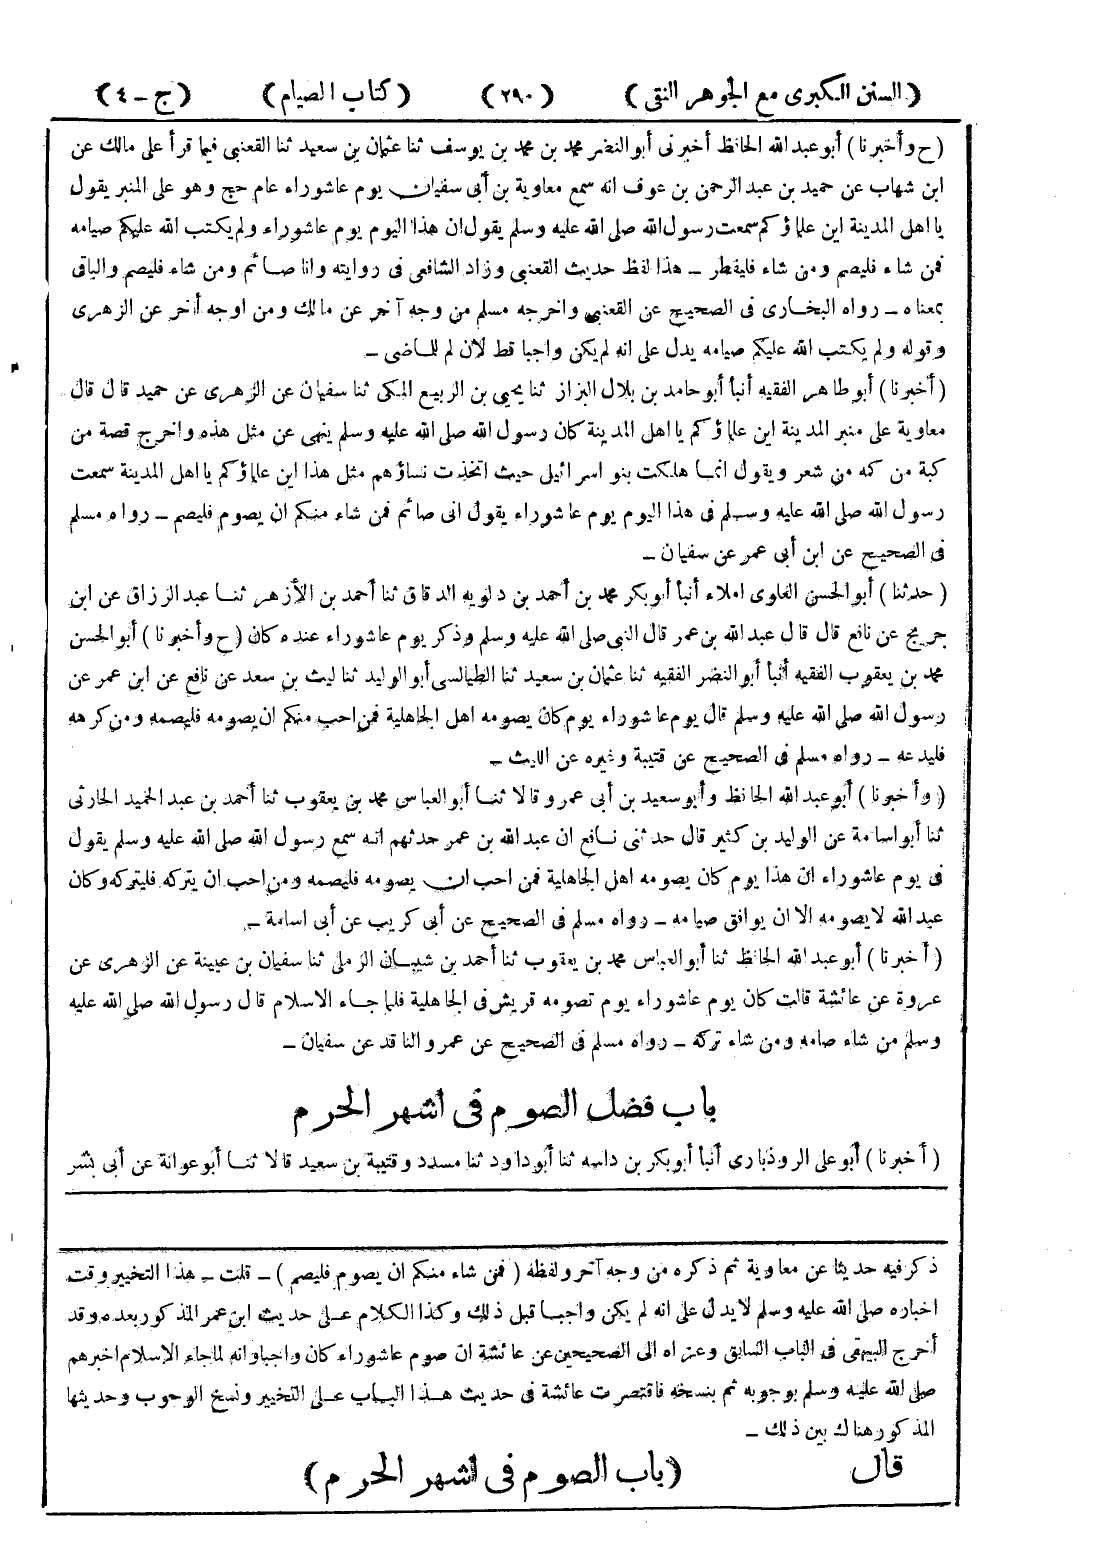 (السنن الكبرى مع الجوهر النقى) (٢٩٠) (كتاب الصيام) (ج - ٤)
(ح وأخبرنا) أبو عبد الله الحافظ أخبرنى أبو النضر محمد بن محمد بن يوسف ثنا عثمان بن سعيد ثنا القعنبى فيما قرأ على مالك عن
ابن شهاب عن حميد بن عبد الرحمن بن عوف انه سمع معاوية بن أبى سفيان يوم عاشوراء عام حج وهو على المنبر يقول
يا اهل المدينة اين علماؤكم سمعت رسول الله صلى الله عليه وسلم يقول ان هذا اليوم يوم عاشوراء ولم يكتب الله عليكم صيامه
فمن شاء فليصم ومن شاء فليفطر - هذا لفظ حديث القعنبى وزاد الشافعى فى روايته وانا صائم ومن شاء فليصم والباقى
بمعناه - رواه البخارى فى الصحيح عن القعنبى واخرجه مسلم من وجه آخر عن مالك ومن اوجه أخر عن الزهرى
وقوله ولم يكتب الله عليكم صيامه يدل على انه لم يكن واجبا قط لان لم للماضى -
(أخبرنا) أبو طاهر الفقيه أنبأ أبو حامد بن بلال البزاز ثنا يحيى بن الربيع المكى ثنا سفيان عن الزهرى عن حميد قال قال
معاوية على منبر المدينة اين علماؤكم يا اهل المدينة كان رسول الله صلى الله عليه وسلم ينهى عن مثل هذه واخرج قصة من
كبة من كمه من شعر ويقول انما هلكت بنو اسرائيل حيث اتخذت نساؤهم مثل هذا اين علماؤكم يا اهل المدينة سمعت
رسول الله صلى الله عليه وسلم فى هذا اليوم يوم عاشوراء يقول انى صائم فمن شاء منكم ان يصوم فليصم - رواه مسلم
فى الصحيح عن ابن أبى عمر عن سفيان -
(حدثنا) أبو الحسن العلوى املاء أنبأ أبو بكر محمد بن أحمد بن دلويه الدقاق ثنا أحمد بن الأزهر ثنا عبد الرزاق عن ابن
جريج عن نافع قال قال عبد الله بن عمر قال النبى صلى الله عليه وسلم وذكر يوم عاشوراء عنده كان (ح وأخبرنا) أبو الحسن
محمد بن يعقوب الفقيه أنبأ أبو النضر الفقيه ثنا عثمان بن سعيد ثنا الطيالسى أبو الوليد ثنا ليث بن سعد عن نافع عن ابن عمر عن
رسول الله صلى الله عليه وسلم قال يوم عاشوراء يوم كان يصومه اهل الجاهلية فمن احب منكم ان يصومه فليصمه ومن كرهه
فليدعه - رواه مسلم فى الصحيح عن قتيبة وغيره عن الليث -
(وأخبرنا) أبو عبد الله الحافظ وأبو سعيد بن أبى عمرو قالا ثنا أبو العباس محمد بن يعقوب ثنا أحمد بن عبد الحميد الحارثى
ثنا أبو اسامة عن الوليد بن كثير قال حدثنى نافع ان عبد الله بن عمر حدثهم انه سمع رسول الله صلى الله عليه وسلم يقول
فى يوم عاشوراء ان هذا يوم كان يصومه اهل الجاهلية فمن احب ان يصومه فليصمه ومن احب ان يتركه فليتركه وكان
عبد الله لا يصومه الا ان يوافق صيامه - رواه مسلم فى الصحيح عن أبى كريب عن أبى اسامة -
(أخبرنا) أبو عبد الله الحافظ ثنا أبو العباس محمد بن يعقوب ثنا أحمد بن شيبان الرملى ثنا سفيان بن عيينة عن الزهرى عن
عروة عن عائشة قالت كان يوم عاشوراء يوم تصومه قريش فى الجاهلية فلما جاء الاسلام قال رسول الله صلى الله عليه
وسلم من شاء صامه ومن شاء تركه - رواه مسلم فى الصحيح عن عمرو الناقد عن سفيان -
باب فضل الصوم فى اشهر الحرم
(أخبرنا) أبو على الروذبارى أنبأ أبو بكر بن داسه ثنا أبو داود ثنا مسدد وقتيبة بن سعيد قالا ثنا أبو عوانة عن أبى بشر
ذكر فيه حديثا عن معاوية ثم ذكره من وجه آخر ولفظه (فمن شاء منكم ان يصوم فليصم) - قلت - هذا التخيير وقت
اخباره صلى الله عليه وسلم لا يدل على انه لم يكن واجبا قبل ذلك وكذا الكلام على حديث ابن عمر المذكور بعده وقد
أخرج البيهقى فى الباب السابق وعزاه الى الصحيحين عن عائشة ان صوم عاشوراء كان واجبا وانه لما جاء الاسلام اخبرهم
صلى الله عليه وسلم بوجوبه ثم بنسخه فاقتصرت عائشة فى حديث هذا الباب على التخيير ونسخ الوجوب وحديثها
المذكور هناك بين ذلك -
قال (باب الصوم فى اشهر الحرم)